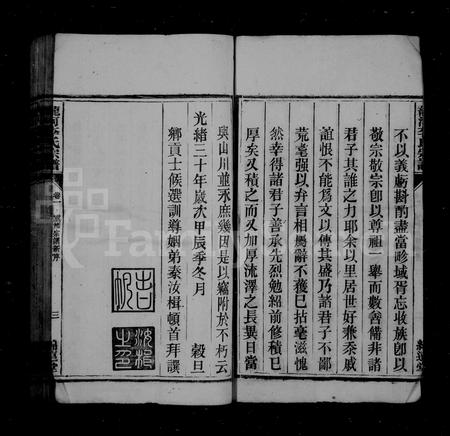 不以義虧斟酌盡當畛域胥忘收族卽以
敬宗敬宗卽以尊祖一舉而數善備非諸
君子其誰之力耶余以里居世好兼忝戚
誼恨不能爲文以傳其盛乃諸君子不鄙
荒耄强以弁言相屬辭不獲已拈毫滋愧
然幸得諸君子善承先烈勉紹前修積已
厚矣又積之而又加厚流澤之長異日當
與山川並永庶幾因是以竊附於不朽云
光緒三十年歲次甲辰季冬月 穀旦
鄉貢士候選訓導姻弟秦汝楫頓首拜譔
三